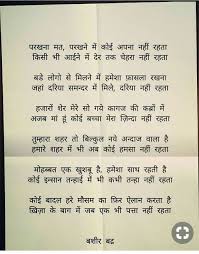 परखना मत, परखने में कोई अपना नहीं रहता
किसी भी आईने में देर तक चेहरा नहीं रहता
बडे लोगो से मिलने में हमेशा फ़ासला रखना
जहां दरिया समन्दर में मिले, दरिया नहीं रहता
हजारों शेर मेरे सो गये कागज की कब्रों में
अजब मां हूं कोई बच्चा मेरा ज़िन्दा नहीं रहता
तुम्हारा शहर तो बिल्कुल नये अन्दाज वाला है
हमारे शहर में भी अब कोई हमसा नहीं रहता
मोहब्बत एक खुशबू है, हमेशा साथ रहती है
कोई इन्सान तन्हाई में भी कभी तन्हा नहीं रहता
कोई बादल हरे मौसम का फ़िर ऐलान करता है
ख़िज़ा के बाग में जब एक भी पत्ता नहीं रहता
बशीर बद्र